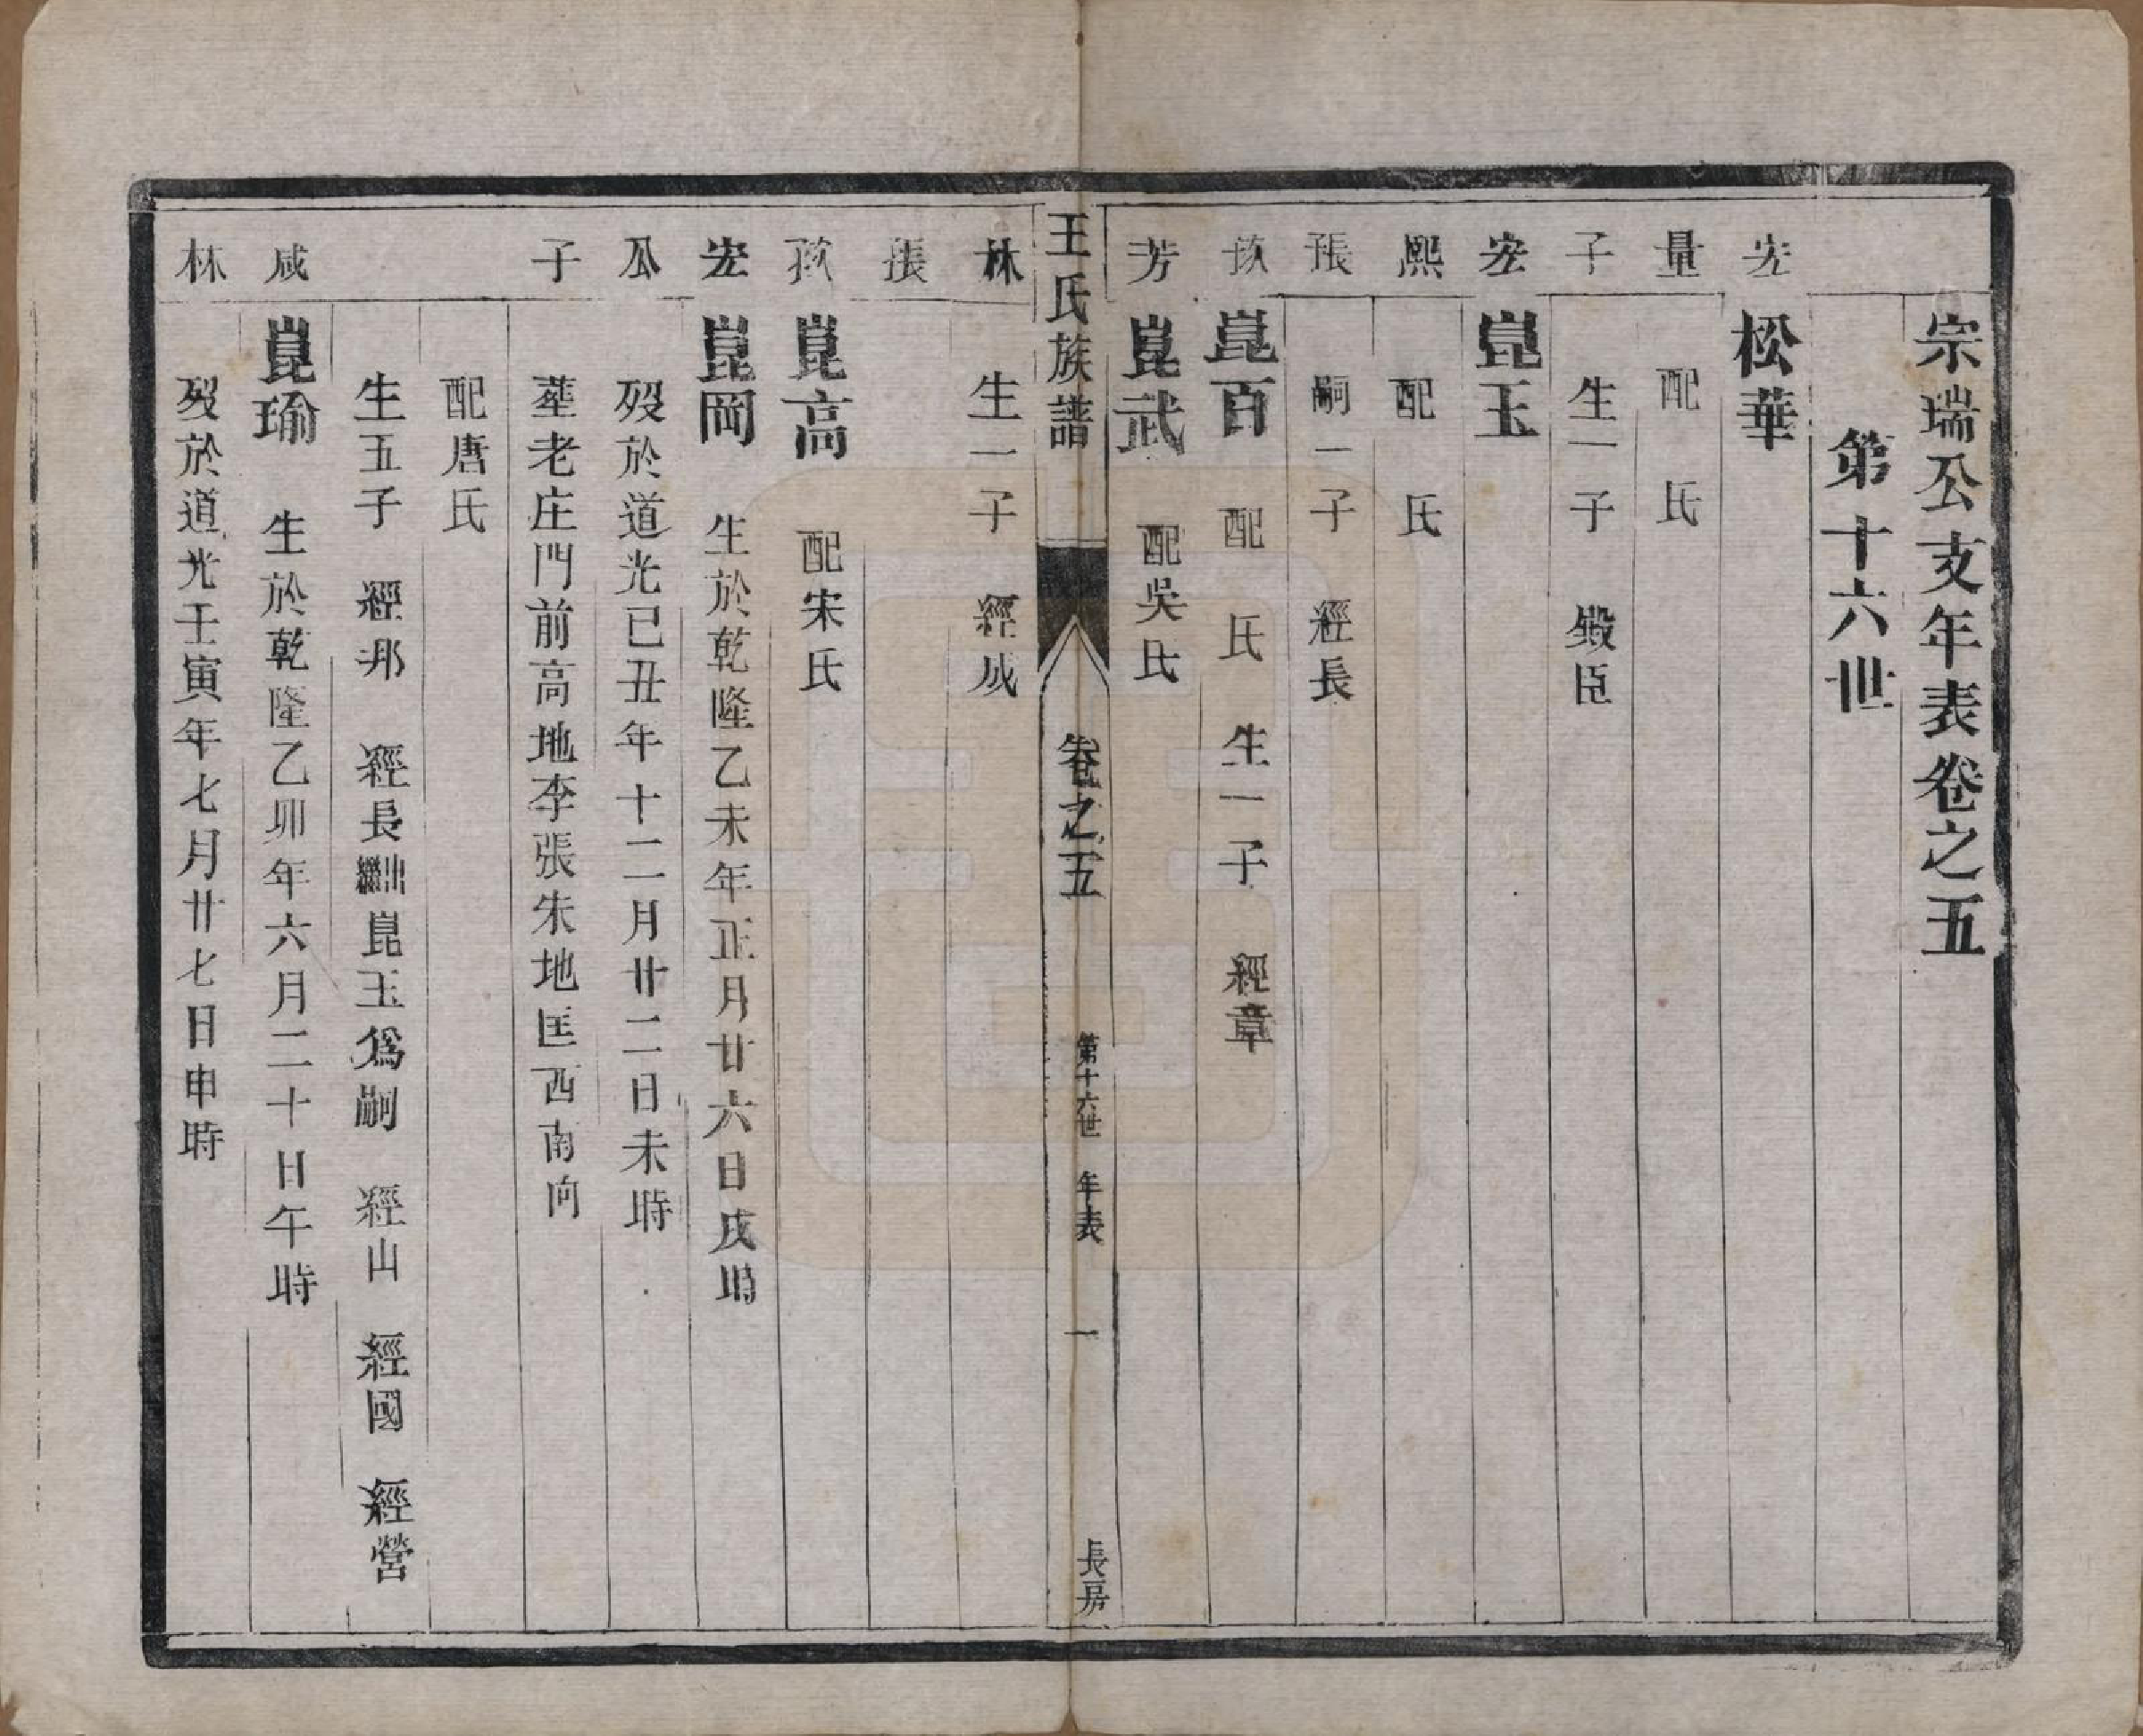 宗瑞公支年表卷之五
第十六世
宏
松華
量
配　氏
子
生一子　殿臣
宏
崑玉
熙
配　氏
張
嗣一子　經長
崑百　配　氏　生一子　經章
芳
崑武　配吳氏
王氏族譜　卷之五　第十六世　年表　一　長房
林
生一子　經成
張
崑高　配宋氏
宏
崑岡　生於乾隆乙未年正月廿六日戌時
瓜
歿於道光已丑年十二月廿二日未時
子
葬老庄門前高地李張朱地匡西南向
配唐氏
生五子　經邦　經長出繼崑玉爲嗣　經山　經國　經營
咸
崑瑜　生於乾隆乙卯年六月二十日午時
林
歿於道光壬寅年七月廿七日申時